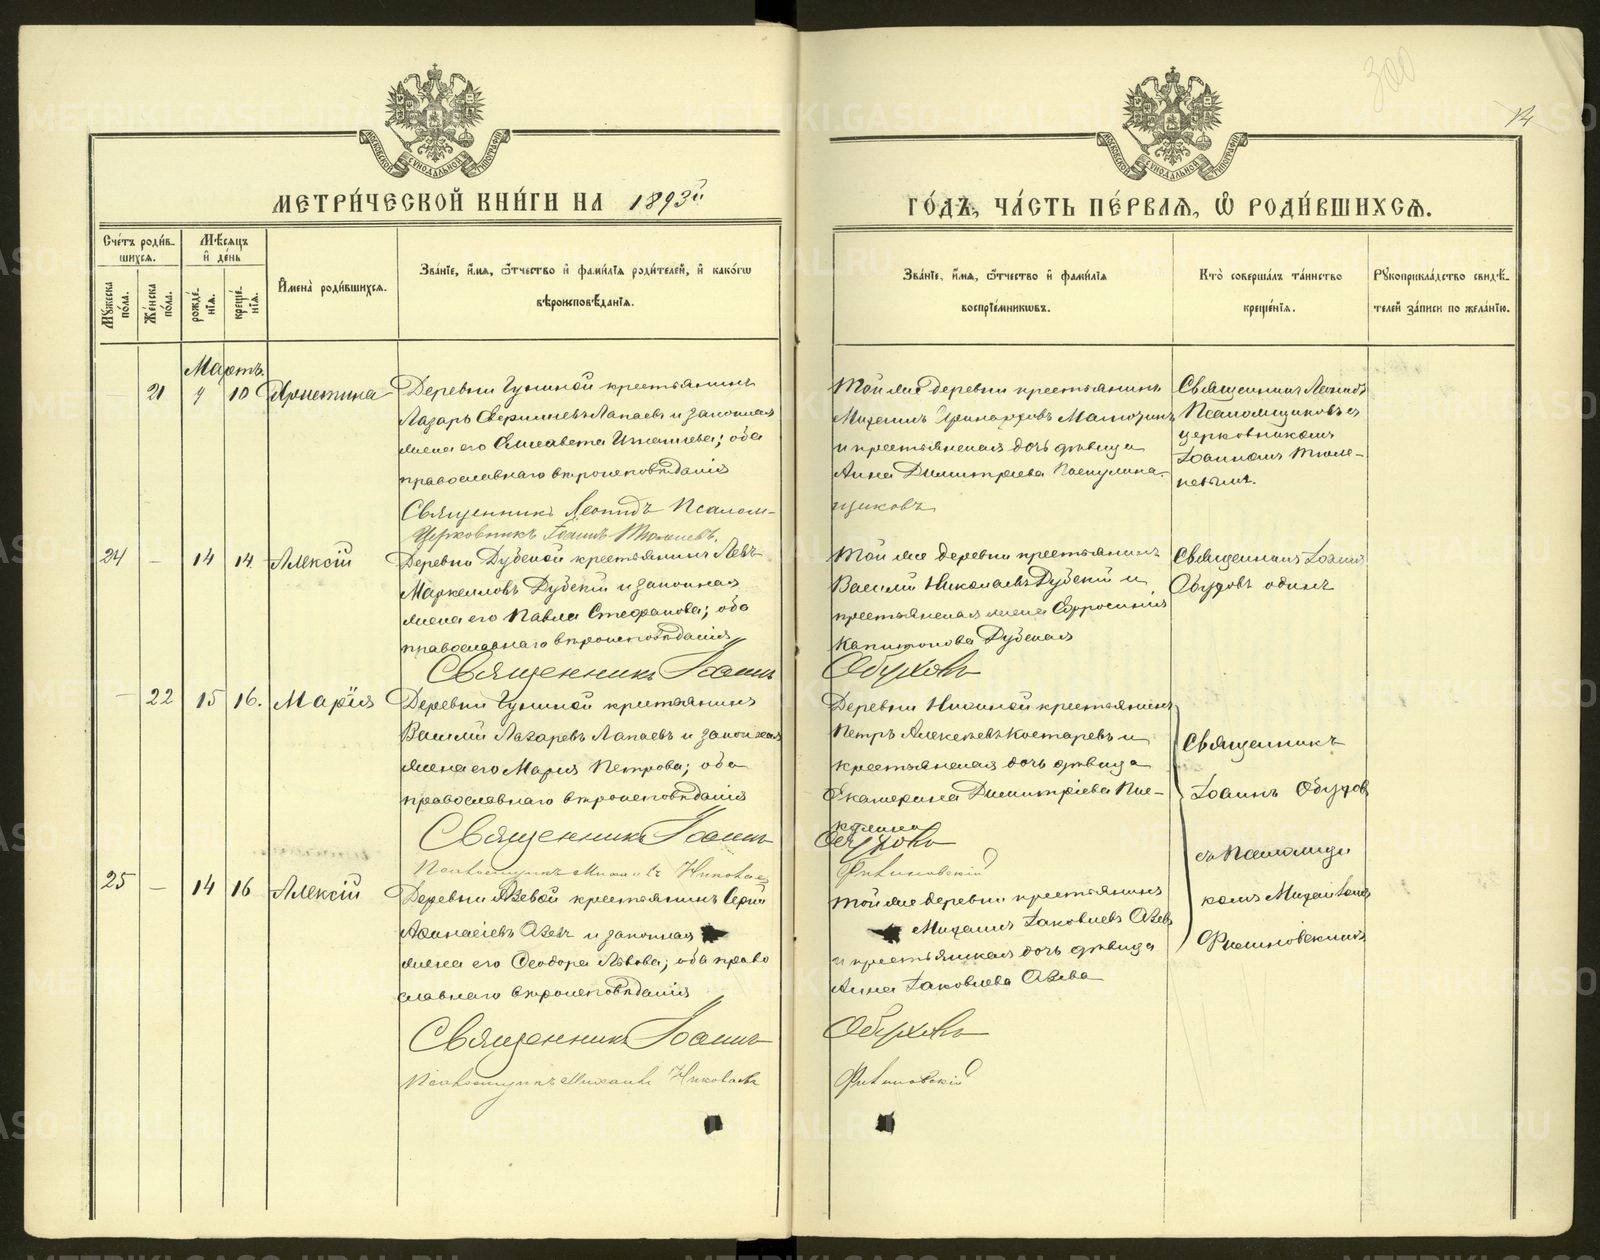 МЕТРИ́ЧЕСКОЙ КНИ́ГИ НА 1893й
ГО́ДЪ, ЧА́СТЬ ПЕ́РВАЯ, Ѽ РОДИ́ВШИХСЯ.
300
14
МОСКОВСКОЙ СѴНОДАЛЬНОЙ ТИПОГРАФІИ
МОСКОВСКОЙ СѴНОДАЛЬНОЙ ТИПОГРАФІИ
Сче́тъ роди́в-
шихся.
Мѣ́сяцъ
и҆ де́нь
Мꙋ́жеска
по́ла.
Же́нска
по́ла.
рожде́-
нїя.
креще́-
нїя.
И҆мена̀ роди́вшихся.
Зва́нїе, и҆́мя, ѻ҆́тчество и҆ фами́лїя роди́телей, и҆ како́гѡ
вѣроисповѣ́данїя.
Зва́нїе, и҆́мя, ѻ҆́тчество и҆ фами́лїя
воспрїе́мникѡвъ.
Кто̀ соверша́лъ та́инство
креще́нїя.
Рꙋкоприкла́дство свидѣ́-
телей за́писи по жела́нїю.
Мартъ.
21 9 10
Деревни Гуниной крестьянинъ
Лазарь Лапаевъ и законная
жена его Елисавета Игнатіева; оба
православнаго вѣроисповѣданія
Священникъ Леонидъ Псалом-
Церковникъ Іоаннъ
Той же деревни крестьянинъ
Михаилъ
и крестьянская дочь дѣвица
Анна Димитріева
щиковъ
Священникъ Леонидъ
Псаломщиковъ съ
церковникомъ
Іоанномъ Тюле-
невымъ.
24 — 14 14 Алексій
Деревни Дубской крестьянинъ Левъ
Маркелловъ Дубскій и законная
жена его Павла Стефанова; оба
православнаго вѣроисповѣданія
Священникъ Іоаннъ
Той же деревни крестьянинъ
Василій Николаевъ Дубскій и
крестьянская жена Евфросинія
Капитонова Дубская
Обуховъ
Священникъ Іоаннъ
Обуховъ одинъ
— 22 15 16. Марія
Деревни Гуниной крестьянинъ
Василій Лазаревъ Лапаевъ и законная
жена его Марія Петрова; оба
православнаго вѣроисповѣданія
Священникъ Іоаннъ
Псаломщикъ Михаилъ Николаевъ
Деревни крестьянинъ
Петръ Алексѣевъ Костаревъ и
крестьянская дочь дѣвица
Екатерина Димитріева
Обуховъ
Священникъ
Іоаннъ Обухов
съ Псаломщи
комъ Михаиломъ
25 — 14 16 Алексій
Деревни Азевой крестьянинъ Сергій
Аѳанасіевъ Азевъ и законная
жена его Ѳеодора Львова; оба право
славнаго вѣроисповѣданія
Священникъ Іоаннъ
Псаломщикъ Михаилъ Николаевъ
Той же деревни крестьянинъ
Михаилъ Іаковлевъ Азевъ
и крестьянская дочь дѣвица
Анна Іаковлева Азева
Обуховъ
METRIKI.GASO-URAL.RU